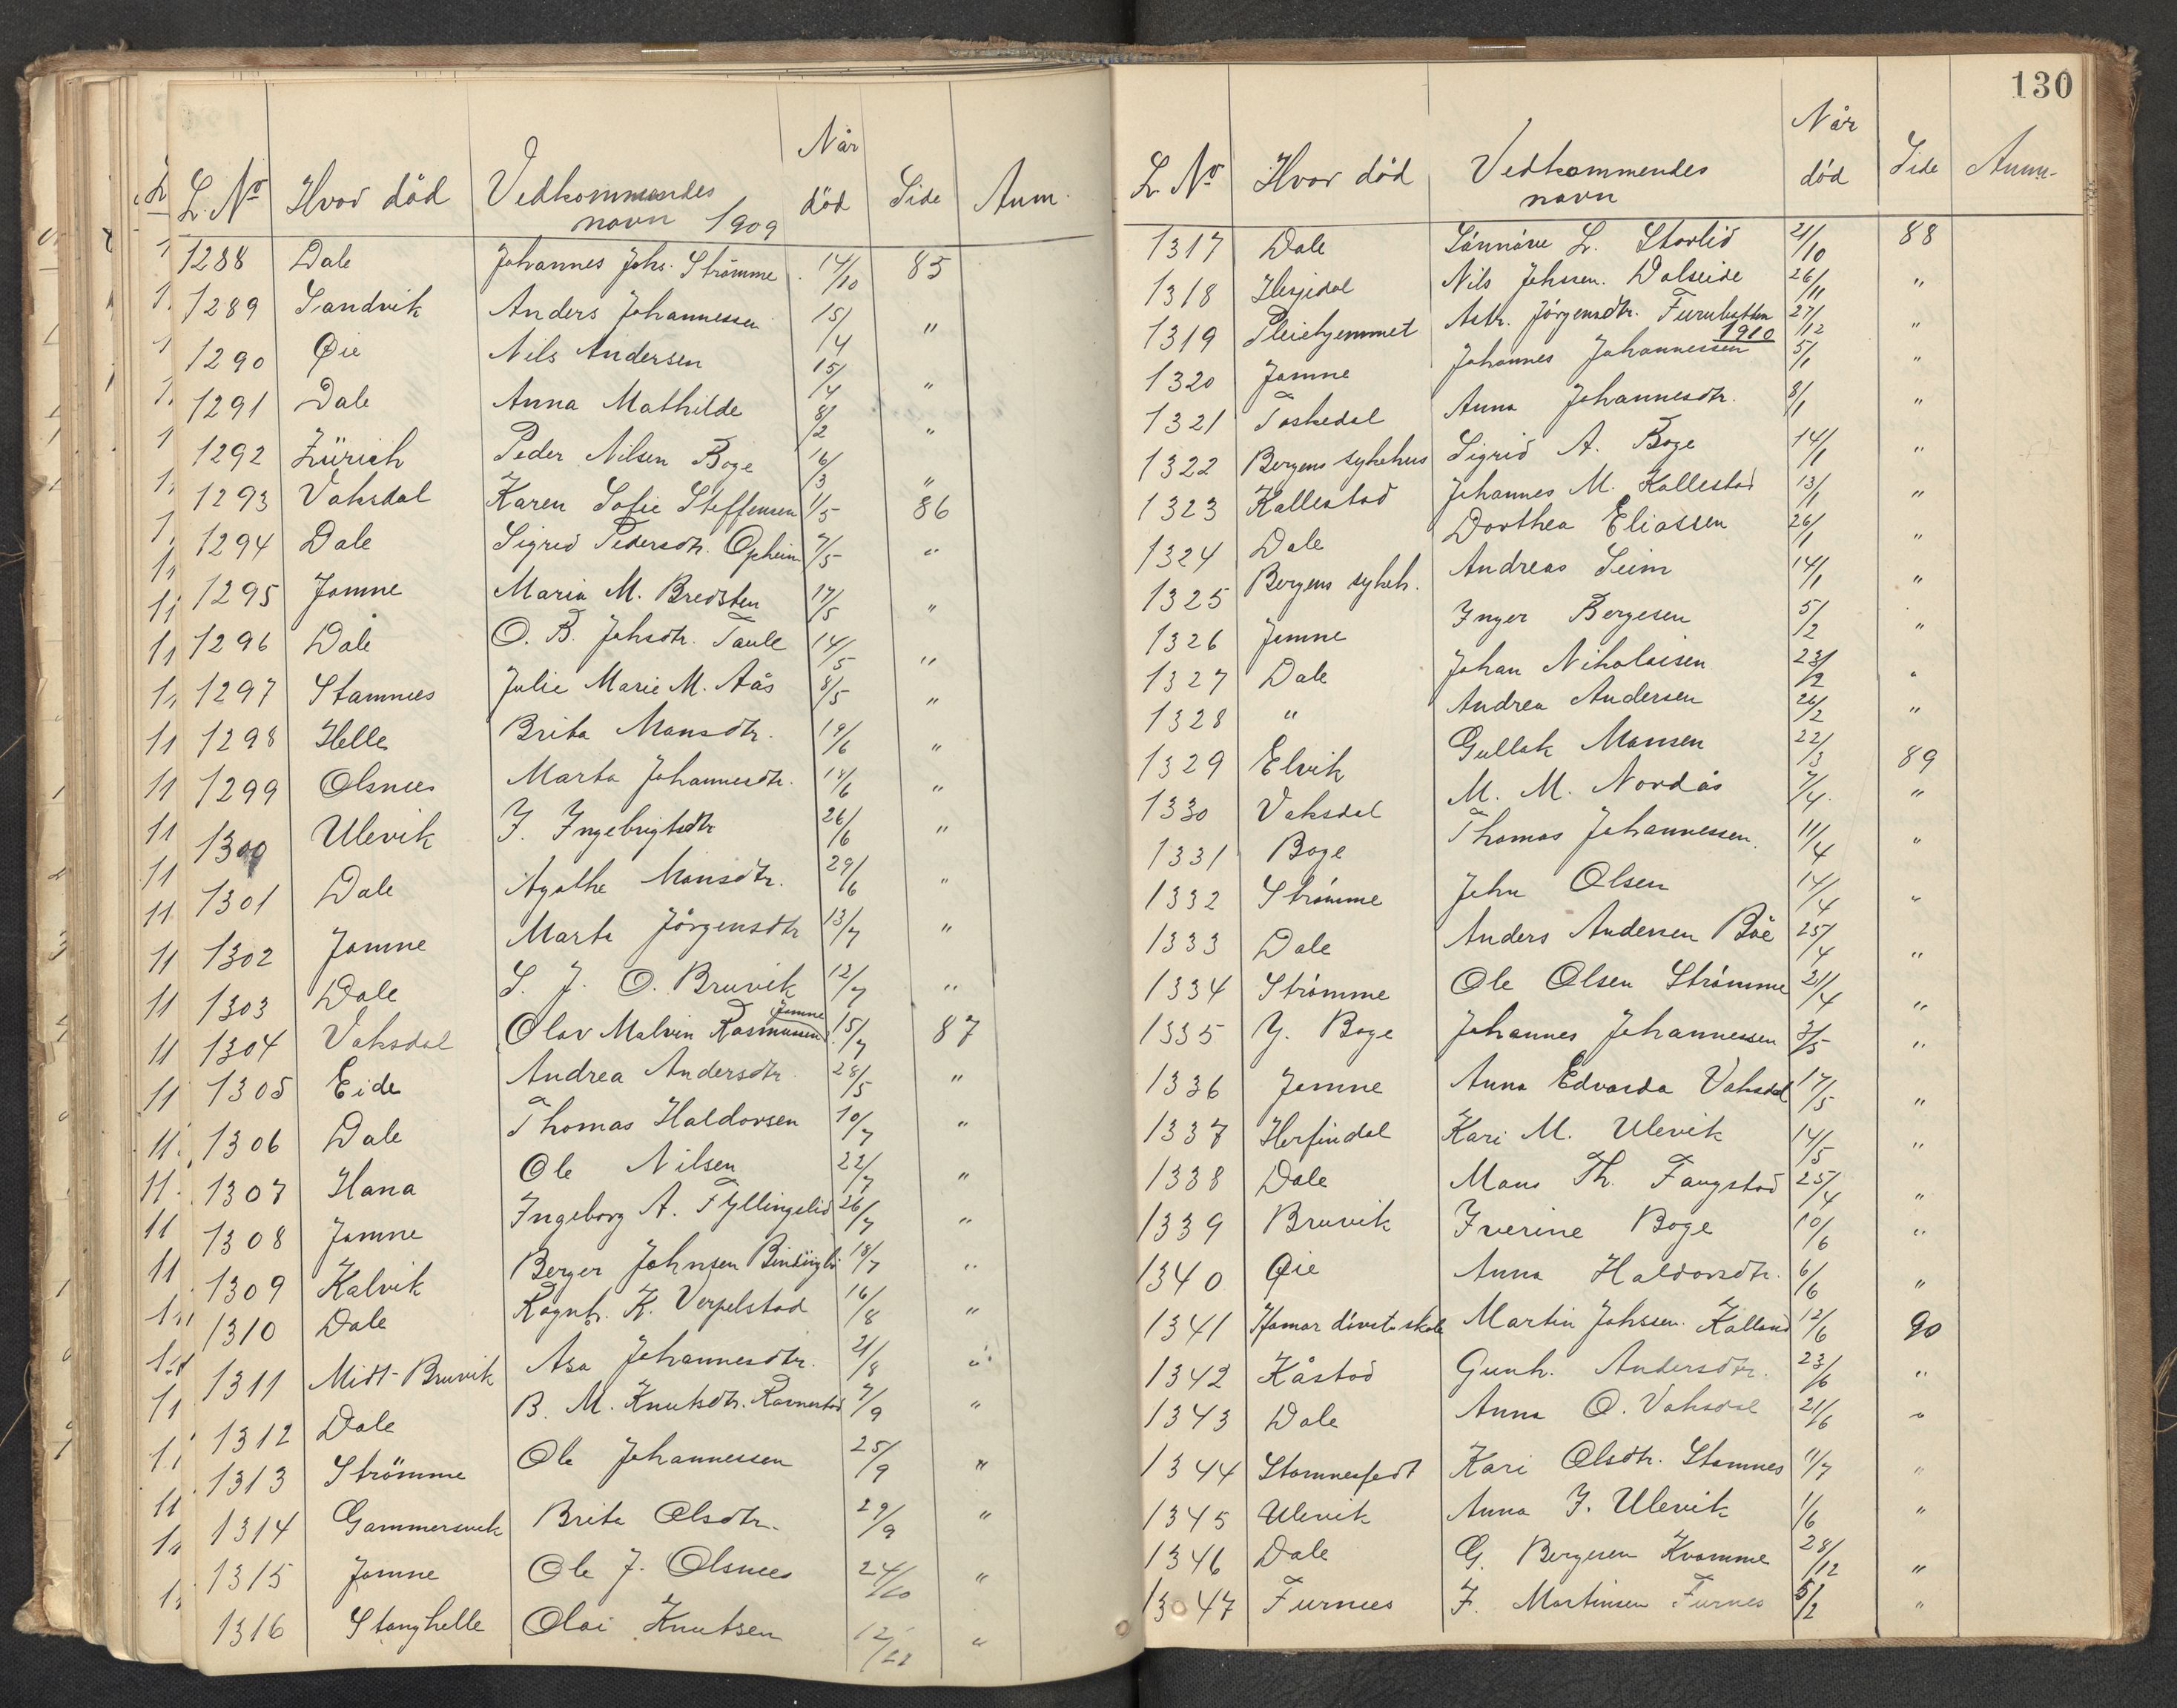 L. No Hvor död Vedkommendes navn 1909 Når död Side Anm.
1288 Dale Johannes Johs. Strömme 14/10 85
1289 Sandvik Anders Johannessen 15/4 "
1290 Øie Nils Andersen 15/4 "
1291 Dale Anna Mathilde 8/2 "
1292 Zürich Peder Nilsen Boge 16/3 "
1293 Vaksdal Karen Sofie Steffensen 1/5 86
1294 Dale Sigrid Pedersdtr. Opheim 7/5 "
1295 Jamne Maria M. Bredsten 17/5 "
1296 Dale O. B. Johsdtr. Taule 14/5 "
1297 Stamnes Julie Marie M. Aås 8/5 "
1298 Helle Brita Monsdtr. 19/6 "
1299 Olsnes Marta Johannesdtr. 18/6 "
1300 Ulevik I. Ingebrigtsdtr 26/6 "
1301 Dale Agathe Monsdtr. 29/6 "
1302 Jamne Marta Jörgensdtr 13/7 "
1303 Dale S. J. O. Bruvik 12/7 "
1304 Vaksdal Olav Malvin Rasmussen Jamne 15/7 87
1305 Eide Andrea Andersdtr. 28/5 "
1306 Dale Thomas Haldorsen 10/7 "
1307 Hana Ole Nilsen 22/7 "
1308 Jamne Ingeborg A. Fyllingslid 26/7 "
1309 Kalvik Berger Johnsen 18/7 "
1310 Dale Ragnh. K. Verpelstad 16/8 "
1311 Midt-Bruvik Asa Johannesdtr. 21/8 "
1312 Dale B. M. Knutsdtr. 7/9 "
1313 Strömme Ole Johannessen 25/9 "
1314 Gammersvik Brita Olsdtr. 29/9 "
1315 Jamne Ole J. Olsnes 24/10 "
1316 Stanghelle Olai Knutsen 12/11 "
130
L. No Hvor död Vedkommendes navn Når död Side Anm.
1317 Dale Sännöve L. Storlid 21/10 88
1318 Hesjedal Nils Johssen. Dalseide 26/11 "
1319 Pleiehjemmet Astr. Jörgensdtr. Furubotten 27/12 "
1910
1320 Jamne Johannes Johannessen 5/1 "
1321 Toskedal Anna Johannesdtr. 8/1 "
1322 Bergens sykehus Sigrid A. Boge 14/1 "
1323 Kallestad Johannes M. Kallestad 13/1 "
1324 Dale Dorthea Eliassen 26/1 "
1325 Bergens sykeh. Andreas Seim 14/1 "
1326 Jamne Inger Bergesen 5/2 "
1327 Dale Johan Nikolaisen 23/2 "
1328 " Andrea Andersen 26/2 "
1329 Elvik Gullak Monsen 22/3 89
1330 Vaksdal M. M. Nordås 7/4 "
1331 Boge Thomas Johannessen. 11/4 "
1332 Strömme John Olsen 14/4 "
1333 Dale Anders Andersen Böe 25/4 "
1334 Strömme Ole Olsen Strömme 21/4 "
1335 Y. Boge Johannes Johannessen 3/5 "
1336 Jamne Anna Edvarda Vaksdal 17/5 "
1337 Herfindal Kari M. Ulevik 14/5 "
1338 Dale Mons Th. Fangstad 25/4 "
1339 Bruvik Iverine Boge 10/6 "
1340 Øie Anna Haldorsdtr. 6/6 "
1341 Hamar döveskole Martin Johssen. Kalland 12/6 90
1342 Kåstad Gunh. Andersdtr. 23/6 "
1343 Dale Anna O. Vaksdal 21/6 "
1344 Kari Olsdtr. Stamnes 11/7 "
1345 Ulevik Anna I. Ulevik 1/6 "
1346 Dale G. Bergesen Kvamme 28/12 "
1347 Furnes I. Martinsen Furnes 5/2 "